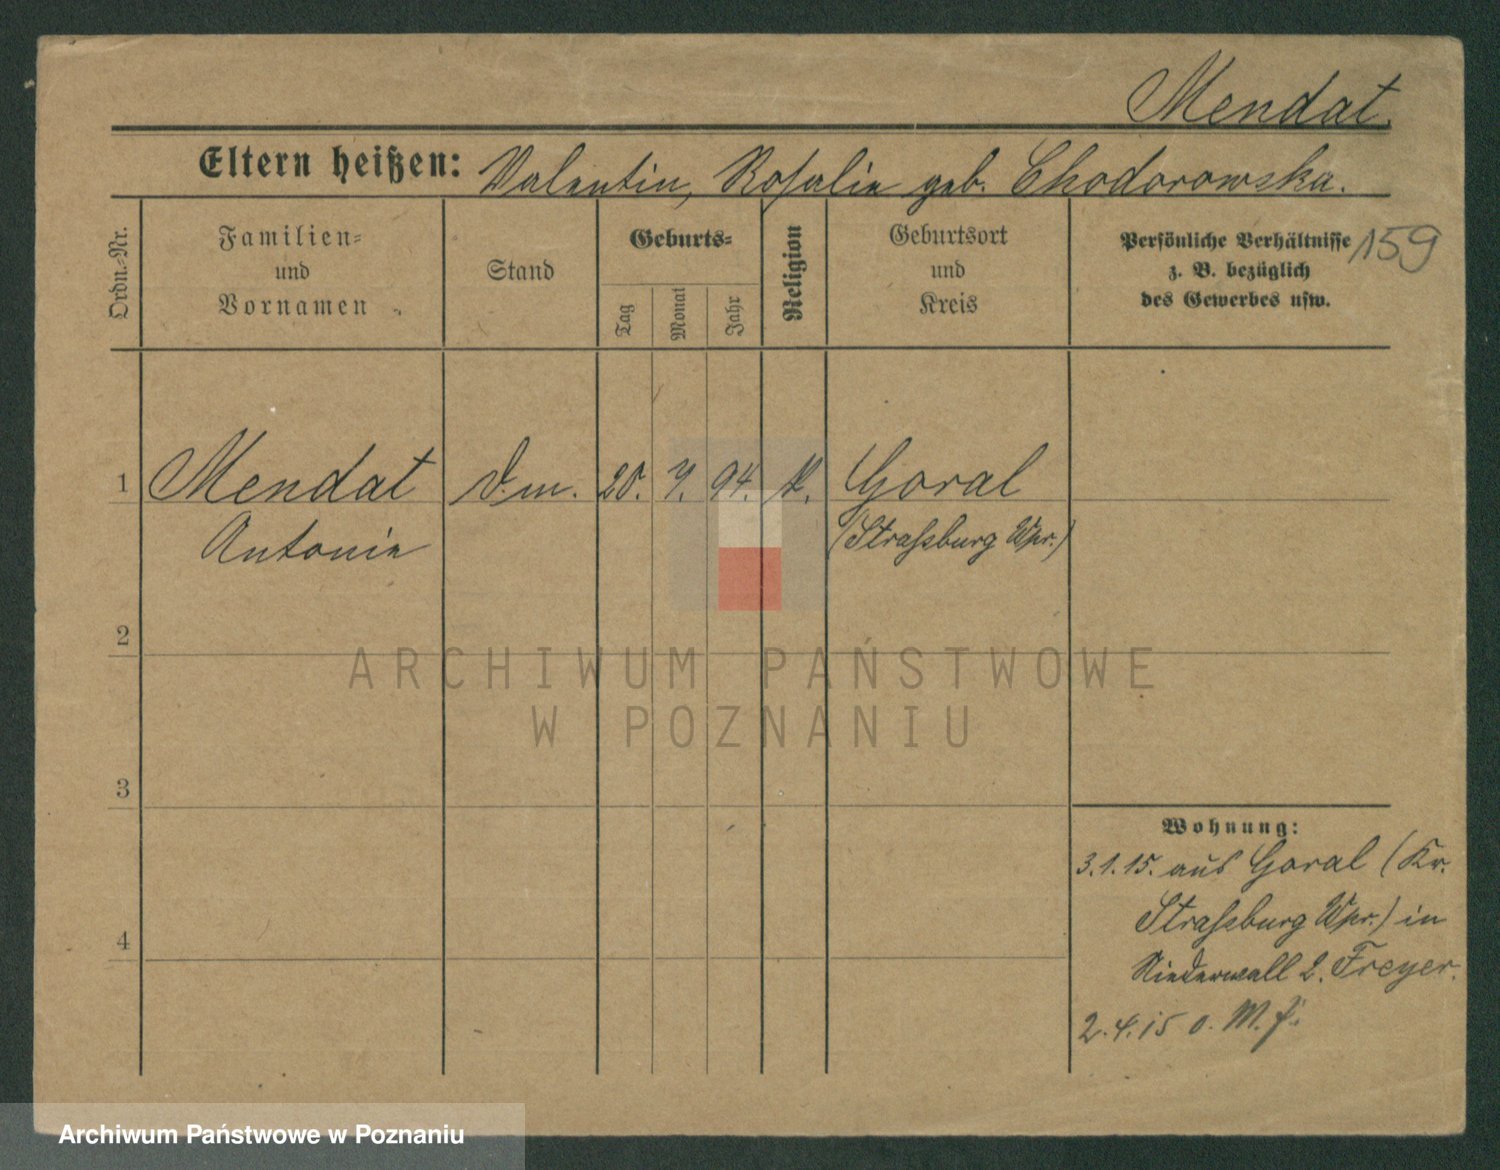 Mendat.
Eltern heißen: Valentin, Rosalie geb. Chodorowska.
Ordn.-Nr.
Familien-
und
Vornamen
Stand
Geburts-
Tag
Monat
Jahr
Religion
Geburtsort
und
Kreis
Persönliche Verhältnisse
z. B. bezüglich
des Gewerbes usw.
159
1 Mendat D.m. 20. 7. 94. k. Goral
Antonie (Strassburg Wpr.)
2
3
4
Wohnung:
3.1.15. aus Goral (Kr.
Strassburg Wpr.) in
Niederwall 2. Freyer.
2.4.15 o. M. f.
ARCHIWUM PAŃSTWOWE
W POZNANIU
Archiwum Państwowe w Poznaniu